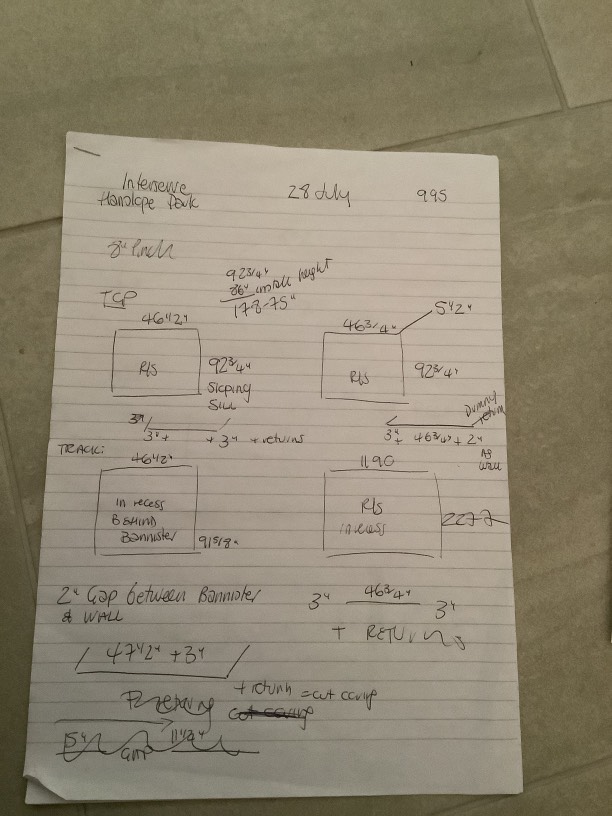 Interserve
Hanslope Park
28 July
995
8" Pinch
TCP
92 3/4"
86" install height
178-75"
46 1/2"
R/S
92 3/4"
Sloping
Sill
3"
3" + + 3" + returns
46 3/4"
5 1/2"
R/S
92 3/4"
Dummy
return
3" + 46 3/4" + 2"
AS
WALL
TRACK:
46 1/2"
in recess
BEHIND
Bannister
91 5/8"
1190
R/S
in recess
2277
2" Gap between Bannister
& WALL
3" 46 3/4" 3"
+ RETURNS
47 1/2" + 3"
+ return = cut coving
cut coving
15" GAP 11 1/2"